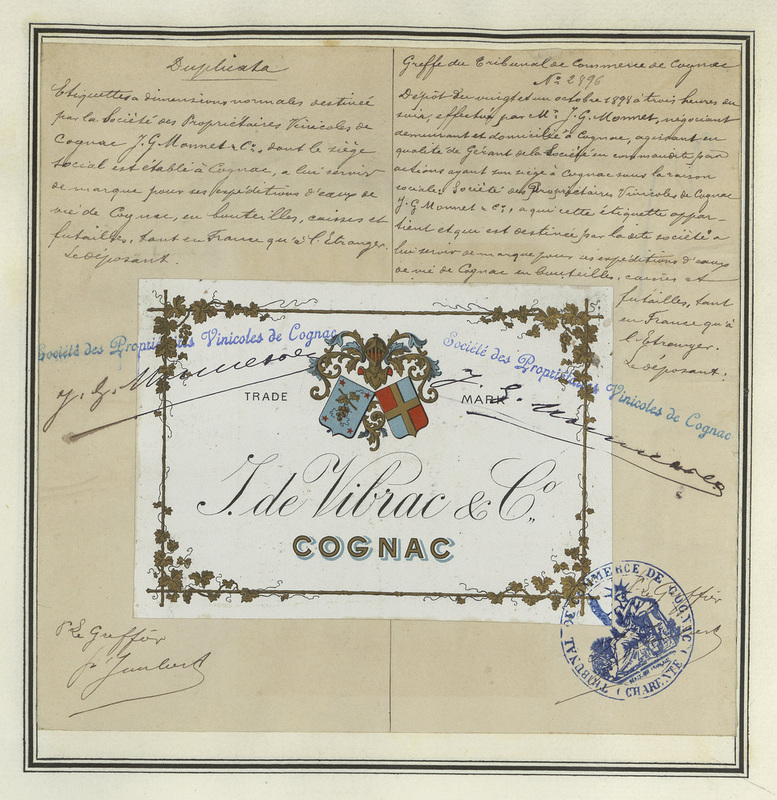 Duplicata
Etiquettes a dimensions normales destinée
par la Société des Propriétaires Vinicoles de
Cognac J. G. Monnet & Cie, dont le siège
social est établi à Cognac, a lui servir
de marque pour ses expéditions d'eaux de
vie de Cognac, en bouteilles, caisses et
futailles, tant en France qu'à l'Etranger.
Le déposant.
Greffe du Tribunal de Commerce de Cognac
No 2896
Dépôt du vingt et un octobre 1898 à trois heures du
soir, effectué par Mr J. G. Monnet, négociant
demeurant et domicilié à Cognac, agissant en
qualité de Gérant de la Société en commandite par
actions ayant son siège à Cognac sous la raison
sociale: Société des Propriétaires Vinicoles de Cognac
J. G. Monnet & Cie, a qui cette étiquette appar-
tient et qui est destinée par la dite société à
lui servir de marque pour ses expéditions d'eaux
de vie de Cognac en bouteilles, caisses et
futailles, tant
en France qu'à
l'Etranger.
Le déposant:
Société des Propriétaires Vinicoles de Cognac
J. G. Monnet & Co
Société des Propriétaires Vinicoles de Cognac
J. G. Monnet & Co
TRADE MARK
J. de Vibrac & Co.
COGNAC
Pr Le Greffier
Le Greffier
TRIBUNAL DE COMMERCE DE COGNAC
(CHARENTE)